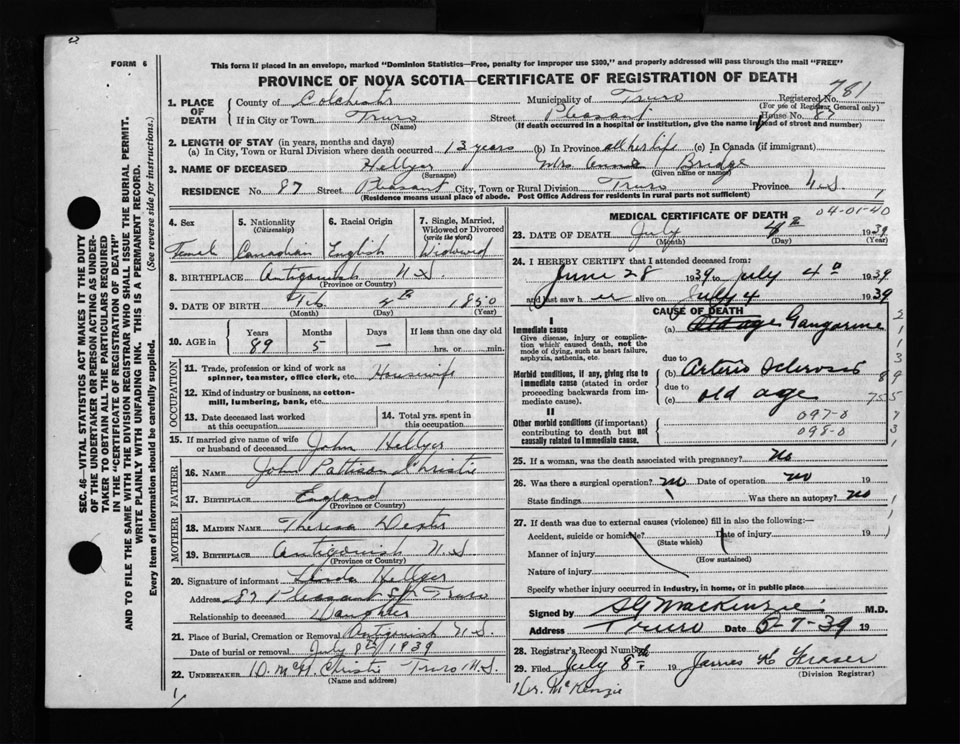 FORM 6
This form if placed in an envelope, marked "Dominion Statistics—Free, penalty for improper use $300," and properly addressed will pass through the mail "FREE"
PROVINCE OF NOVA SCOTIA—CERTIFICATE OF REGISTRATION OF DEATH
Registered No. 781
(For use of Registrar General only)
1. PLACE OF DEATH County of Colchester Municipality of Truro
If in City or Town Truro Street Pleasant House No. 87
(Name) (If death occurred in a hospital or institution, give the name instead of street and number)
2. LENGTH OF STAY (in years, months and days)
(a) In City, Town or Rural Division where death occurred 13 years (b) In Province all her life (c) In Canada (if immigrant)
3. NAME OF DECEASED Hellyer Mrs Bridge
(Surname) (Given name or names)
RESIDENCE No. 87 Street Pleasant City, Town or Rural Division Truro Province N.S.
(Residence means usual place of abode. Post Office Address for residents in rural parts not sufficient)
4. Sex 5. Nationality (Citizenship) 6. Racial Origin 7. Single, Married, Widowed or Divorced (write the word)
Female Canadian English Widowed
8. BIRTHPLACE Antigonish N.S.
(Province or Country)
9. DATE OF BIRTH Feb 4th 1850
(Month) (Day) (Year)
10. AGE in Years Months Days If less than one day old
89 5 — hrs. or min.
OCCUPATION
11. Trade, profession or kind of work as spinner, teamster, office clerk, etc. Housewife
12. Kind of industry or business, as cotton-mill, lumbering, bank, etc.
13. Date deceased last worked at this occupation
14. Total yrs. spent in this occupation
15. If married give name of wife or husband of deceased John Hellyer
FATHER
16. NAME John Pattison Christie
17. BIRTHPLACE England
(Province or Country)
MOTHER
18. MAIDEN NAME Theresa
19. BIRTHPLACE Antigonish N.S
(Province or Country)
20. Signature of informant Hellyer
Address 87 Pleasant St Truro
Relationship to deceased Daughter
21. Place of Burial, Cremation or Removal Antigonish N.S.
Date of burial or removal July 8th 1939
22. UNDERTAKER D. McN. Christie Truro N.S.
(Name and address)
MEDICAL CERTIFICATE OF DEATH 04-01-40
23. DATE OF DEATH July 4th 1939
(Month) (Day) (Year)
24. I HEREBY CERTIFY that I attended deceased from:
June 28 1939 to July 4th 1939
and last saw her alive on July 4 1939
CAUSE OF DEATH
I
Immediate cause
Give disease, injury or complication which caused death, not the mode of dying, such as heart failure, asphyxia, asthenia, etc.
(a) Old age Gangrene
due to
Morbid conditions, if any, giving rise to immediate cause (stated in order proceeding backwards from immediate cause).
(b) Arterio Sclerosis
due to
(c) old age
II
Other morbid conditions (if important) contributing to death but not causally related to immediate cause.
097-0
098-0
25. If a woman, was the death associated with pregnancy? no
26. Was there a surgical operation? no Date of operation no 19
State findings Was there an autopsy? no
27. If death was due to external causes (violence) fill in also the following:—
Accident, suicide or homicide? Date of injury 19
(State which)
Manner of injury (How sustained)
Nature of injury
Specify whether injury occurred in industry, in home, or in public place
Signed by S G MacKenzie M.D.
Address Truro Date 5-7-39 19
28. Registrar's Record Number
29. Filed July 8th 19 James K Fraser
(Division Registrar)
Dr. McKenzie
SEC. 46—VITAL STATISTICS ACT MAKES IT THE DUTY
OF THE UNDERTAKER OR PERSON ACTING AS UNDERTAKER
TO OBTAIN ALL THE PARTICULARS REQUIRED
IN THE "CERTIFICATE OF REGISTRATION OF DEATH"
AND TO FILE THE SAME WITH THE DIVISION REGISTRAR WHO SHALL ISSUE THE BURIAL PERMIT.
WRITE PLAINLY WITH UNFADING INK. THIS IS A PERMANENT RECORD.
Every item of information should be carefully supplied. (See reverse side for instructions.)